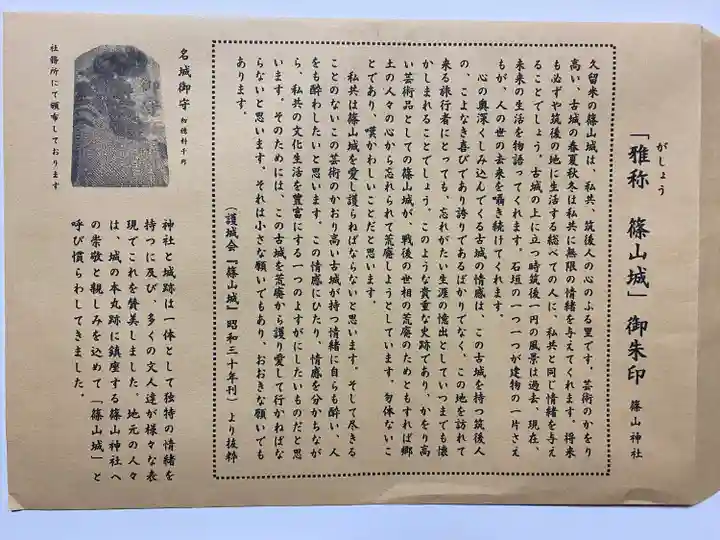 がしょう
「雅称 篠山城」御朱印 篠山神社
久留米の篠山城は、私共、筑後人の心のふる里です。芸術のかをり
高い、古城の春夏秋冬は私共に無限の情緒を与えてくれます。将来
も必ずや筑後の地に生活する総べての人に、私共と同じ情緒を与え
ることでしょう。古城の上に立つ時筑後一円の風景は過去、現在、
未来の生活を物語ってくれます。石垣の一つ一つが建物の一片さえ
もが、人の世の去来を囁き続けてくれます。
心の奥深くしみ込んでくる古城の情感は、この古城を持つ筑後人
の、こよなき喜びであり誇りであるばかりでなく、この地を訪れて
来る旅行者にとっても、忘れがたい生涯の憶出としていつまでも懐
かしまれることでしょう。このような貴重な史跡であり、かをり高
い芸術品としての篠山城が、戦後の世相の荒廃のためともすれば郷
土の人々の心から忘れられて荒廃しようとしています。勿体ないこ
とであり、嘆かわしいことだと思います。
私共は篠山城を愛し護らねばならないと思います。そして尽きる
ことのないこの芸術のかおり高い古城が持つ情緒に自らも酔い、人
をも酔わしたいと思います。この情感にひたり、情感を分かちなが
ら、私共の文化生活を豊富にする一つのよすがにしたいものだと思
います。そのためには、この古城を荒廃から護り愛して行かねばな
らないと思います。それは小さな願いでもあり、おおきな願いでも
あります。
（護城会『篠山城』昭和三十年刊）より抜粋
神社と城跡は一体として独特の情緒を
持つに及び、多くの文人達が様々な表
現でこれを賛美しました。地元の人々
は、城の本丸跡に鎮座する篠山神社へ
の崇敬と親しみを込めて「篠山城」と
呼び慣らわしてきました。
名城御守 初穂料千円
御守
社務所にて頒布しております